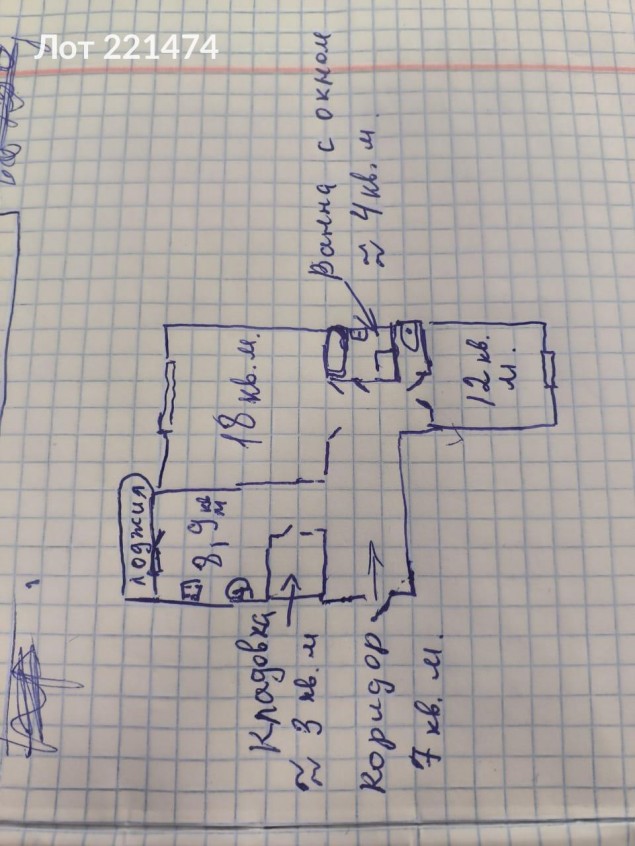 Лот 221474
Ванна с окном
≈ 4 кв. м.
18 кв. м.
12 кв.
м.
лоджия
8,9 кв
м
Кладовка
≈ 3 кв. м
Коридор
7 кв. м.